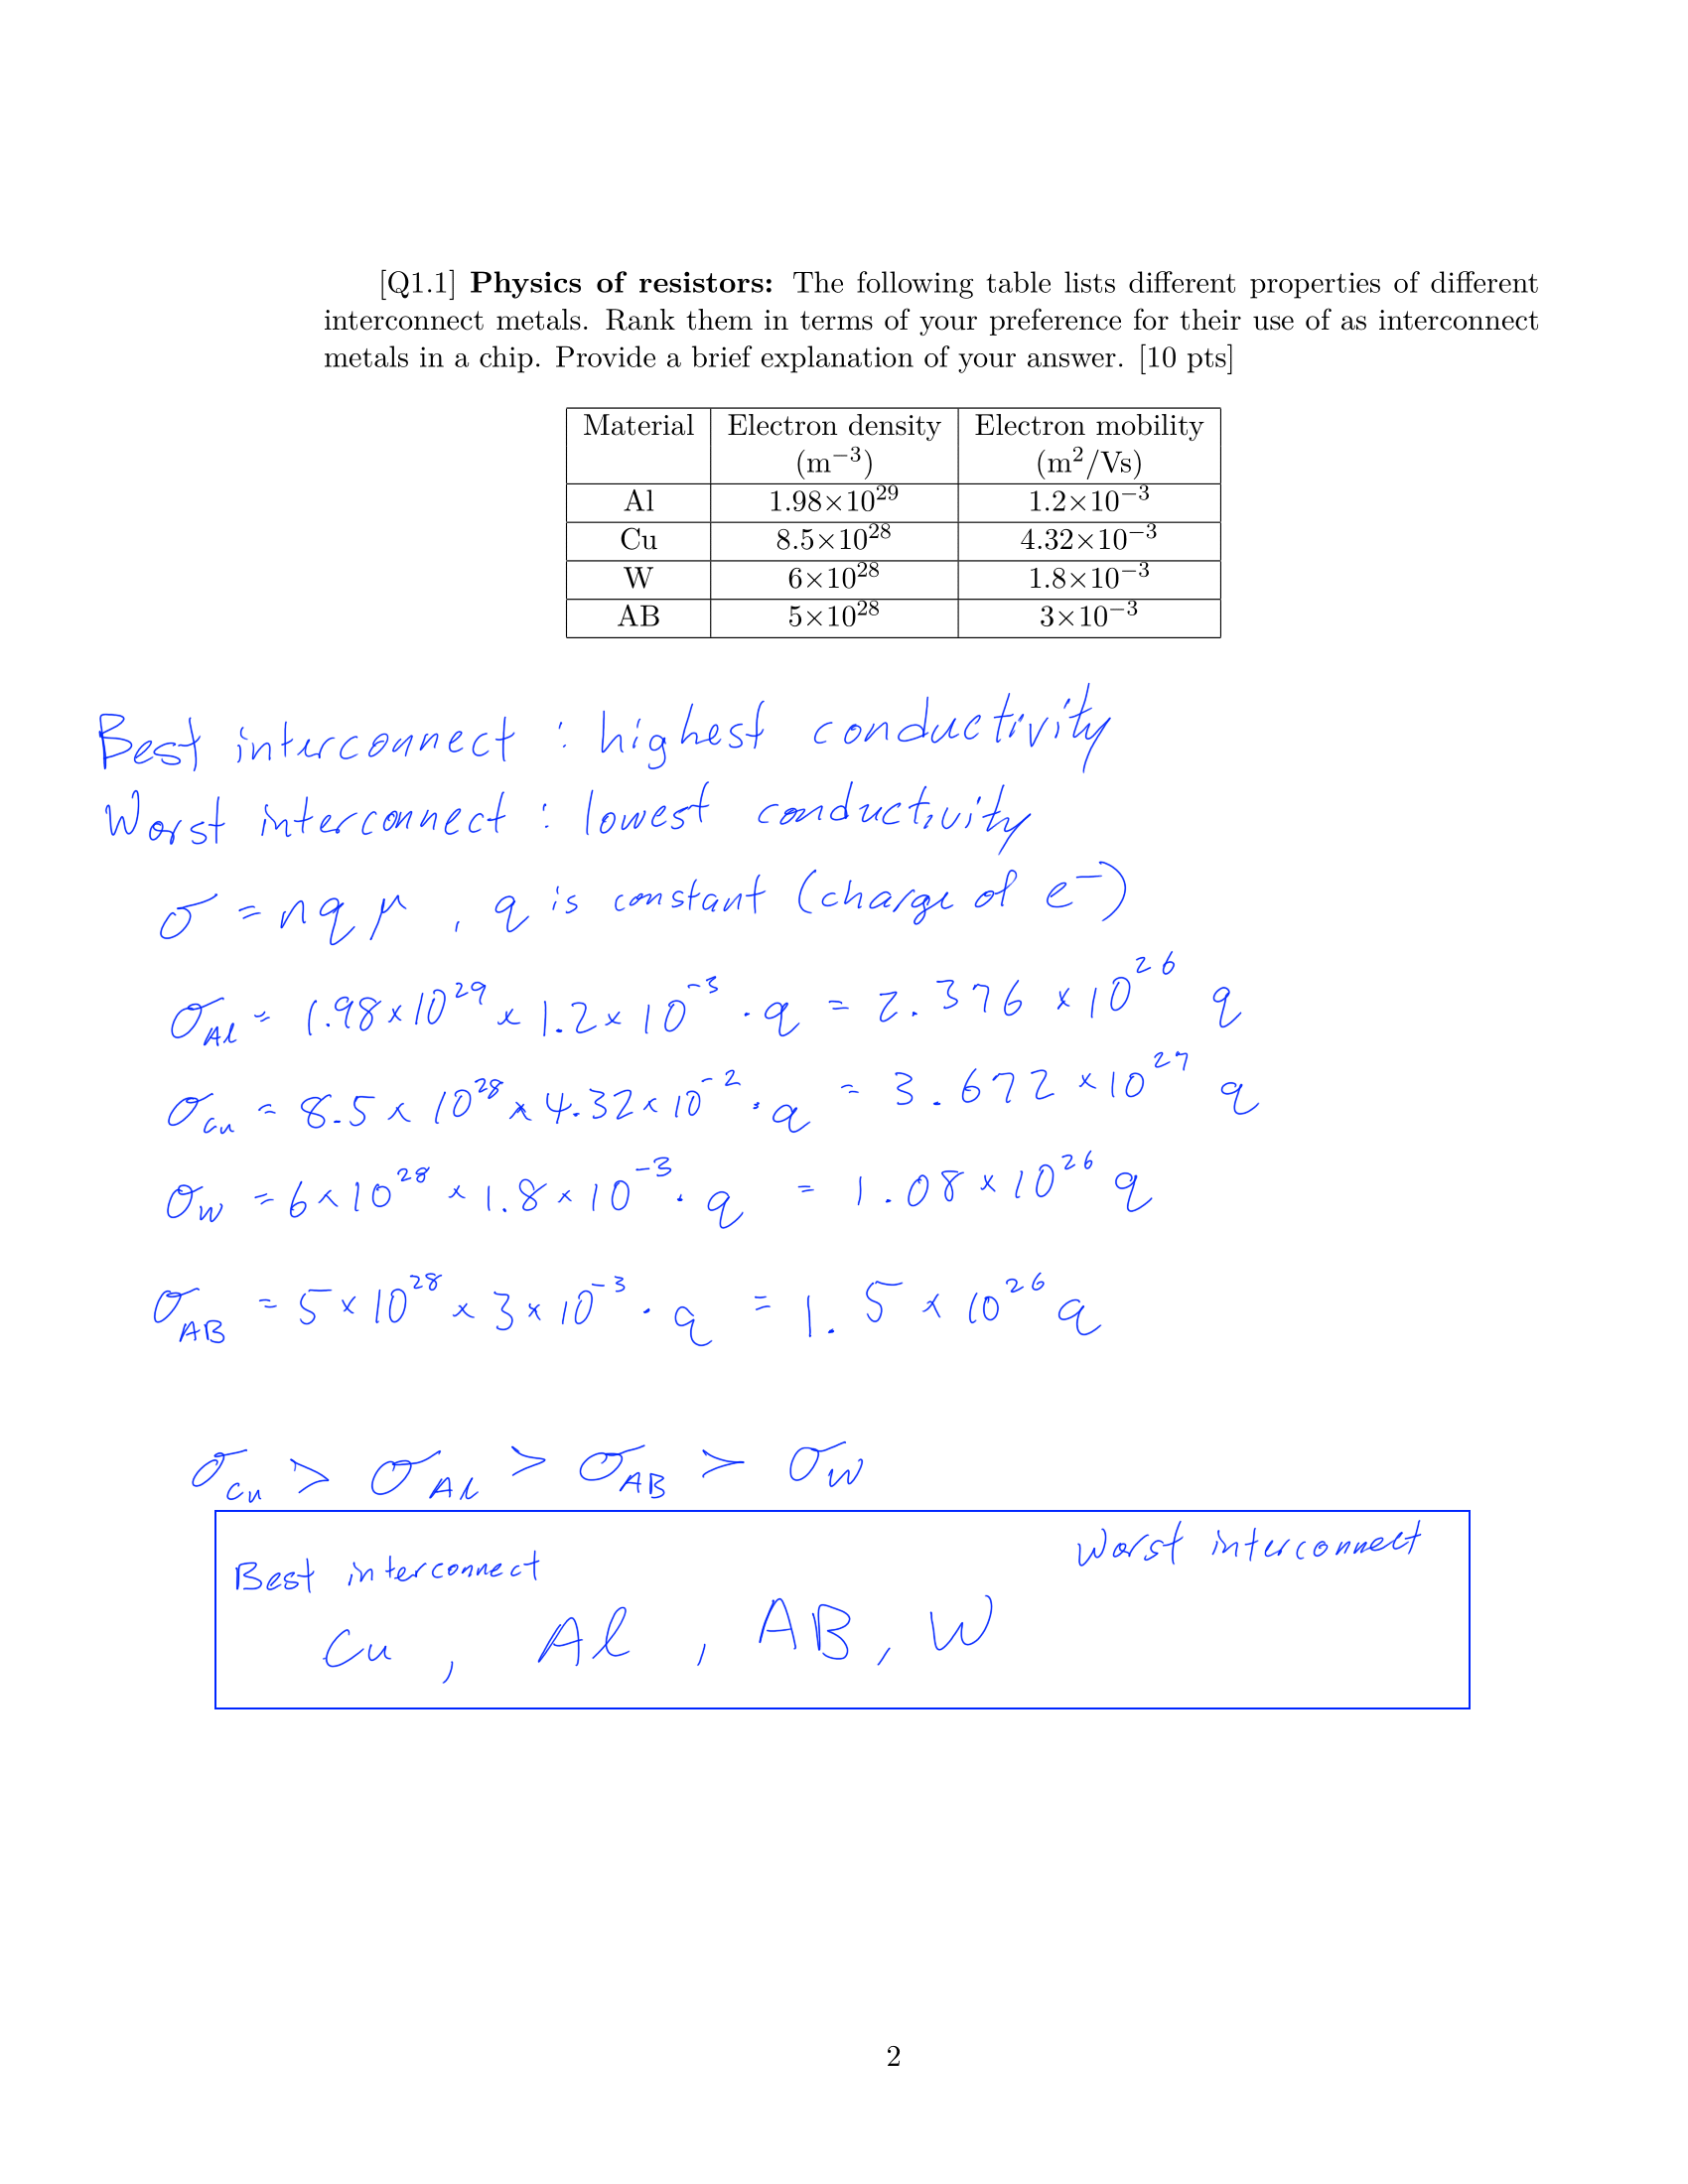 [Q1.1] Physics of resistors: The following table lists different properties of different
interconnect metals. Rank them in terms of your preference for their use of as interconnect
metals in a chip. Provide a brief explanation of your answer. [10 pts]
Material Electron density Electron mobility
(m⁻³) (m²/Vs)
Al 1.98×10²⁹ 1.2×10⁻³
Cu 8.5×10²⁸ 4.32×10⁻³
W 6×10²⁸ 1.8×10⁻³
AB 5×10²⁸ 3×10⁻³
Best interconnect : highest conductivity
Worst interconnect : lowest conductivity
σ = nqμ , q is constant (charge of e⁻)
σ_Al = 1.98×10²⁹ × 1.2×10⁻³ · q = 2.376 ×10²⁶ q
σ_Cu = 8.5 × 10²⁸ × 4.32×10⁻² · q = 3.672 ×10²⁷ q
σ_W = 6×10²⁸ × 1.8×10⁻³ · q = 1.08×10²⁶ q
σ_AB = 5×10²⁸ × 3×10⁻³ · q = 1.5 × 10²⁶ q
σ_Cu > σ_Al > σ_AB > σ_W
Best interconnect Worst interconnect
Cu , Al , AB, W
2